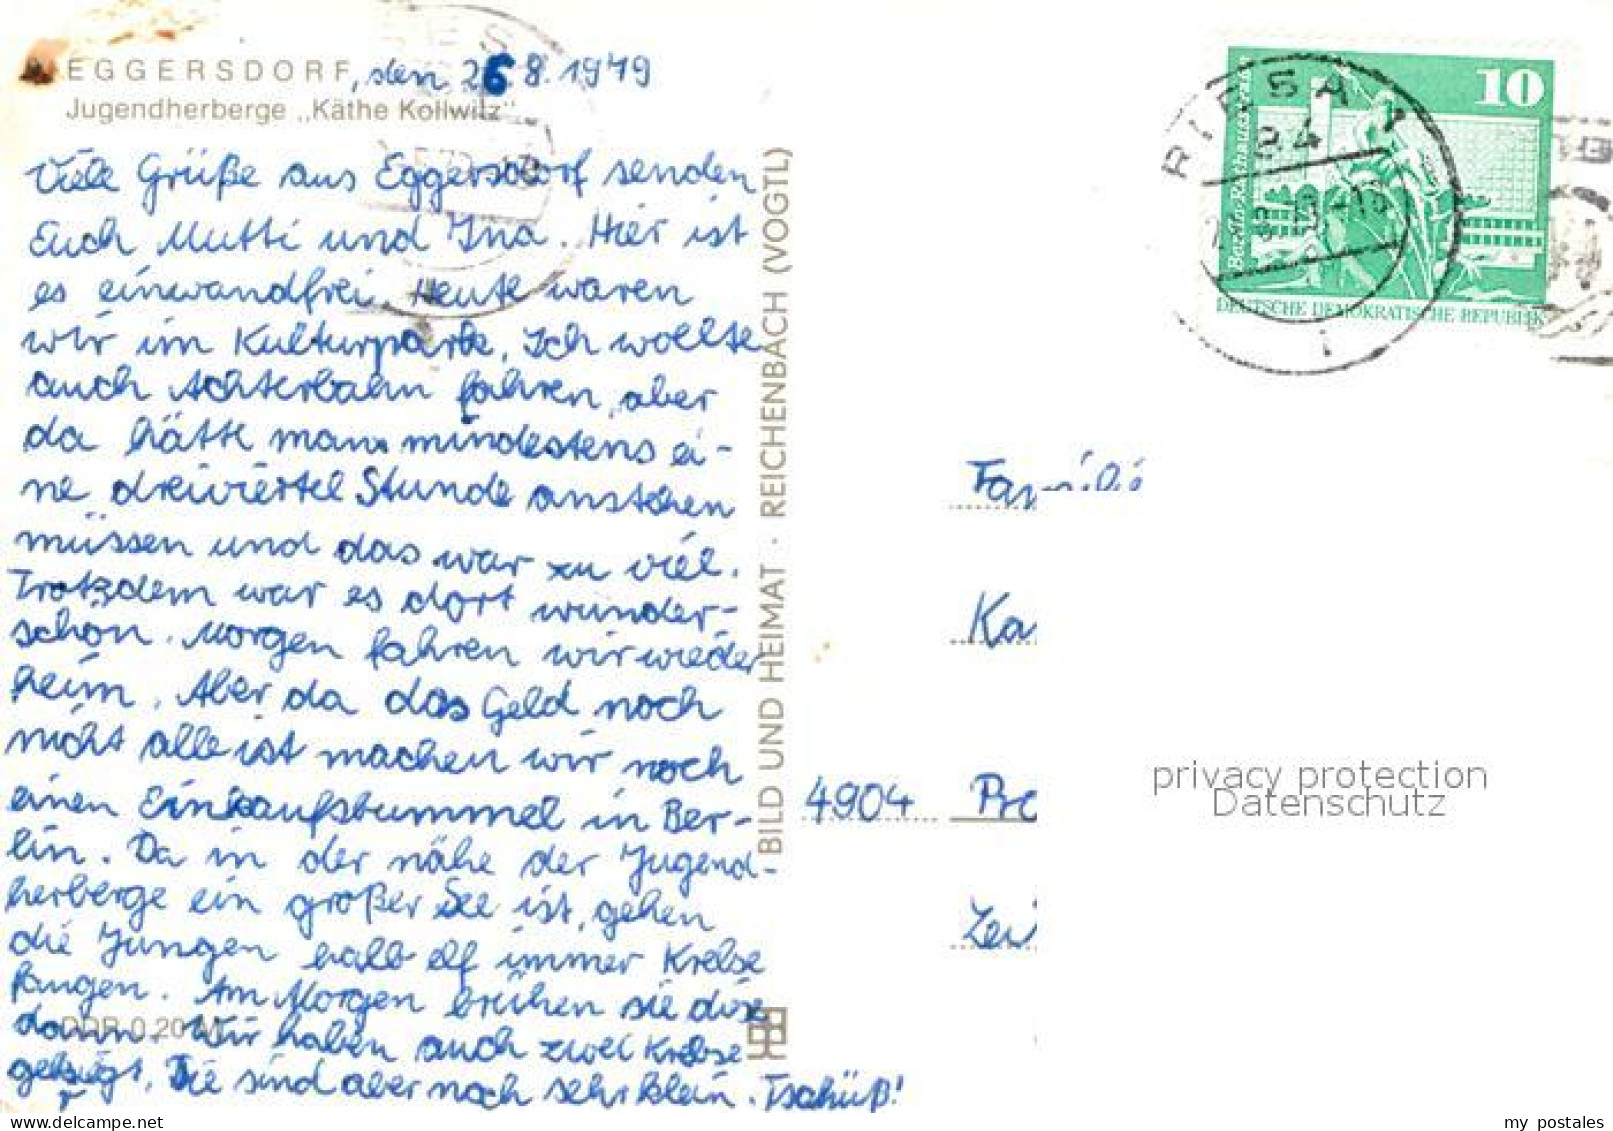 EGGERSDORF, den 26 8. 1979
Jugendherberge „Käthe Kollwitz"
Viele Grüße aus Eggersdorf senden
Euch Mutti und Ina. Hier ist
es einwandfrei. Heute waren
wir im Kulturpark. Ich wollte
auch Achterbahn fahren, aber
da hätte man mindestens ei-
ne dreiviertel Stunde anstehen
müssen und das war zu viel.
Trotzdem war es dort wunder-
schön. Morgen fahren wir wieder
heim. Aber da das Geld noch
nicht alle ist machen wir noch
einen Einkaufsbummel in Ber-
lin. Da in der nähe der Jugend-
herberge ein großer See ist, gehen
die Jungen halb elf immer Krebse
fangen. Am Morgen brühen sie diese
dann. Wir haben auch zwei Krebse
gekriegt. Sie sind aber noch sehr klein. Tschüß!
DDR 0,20 M
BILD UND HEIMAT · REICHENBACH (VOGTL)
RIESA 1
84
10
Berlin-Rathausstraße
DEUTSCHE DEMOKRATISCHE REPUBLIK
Familie
Ka
4904 Pro
Zei
privacy protection
Datenschutz
my postales